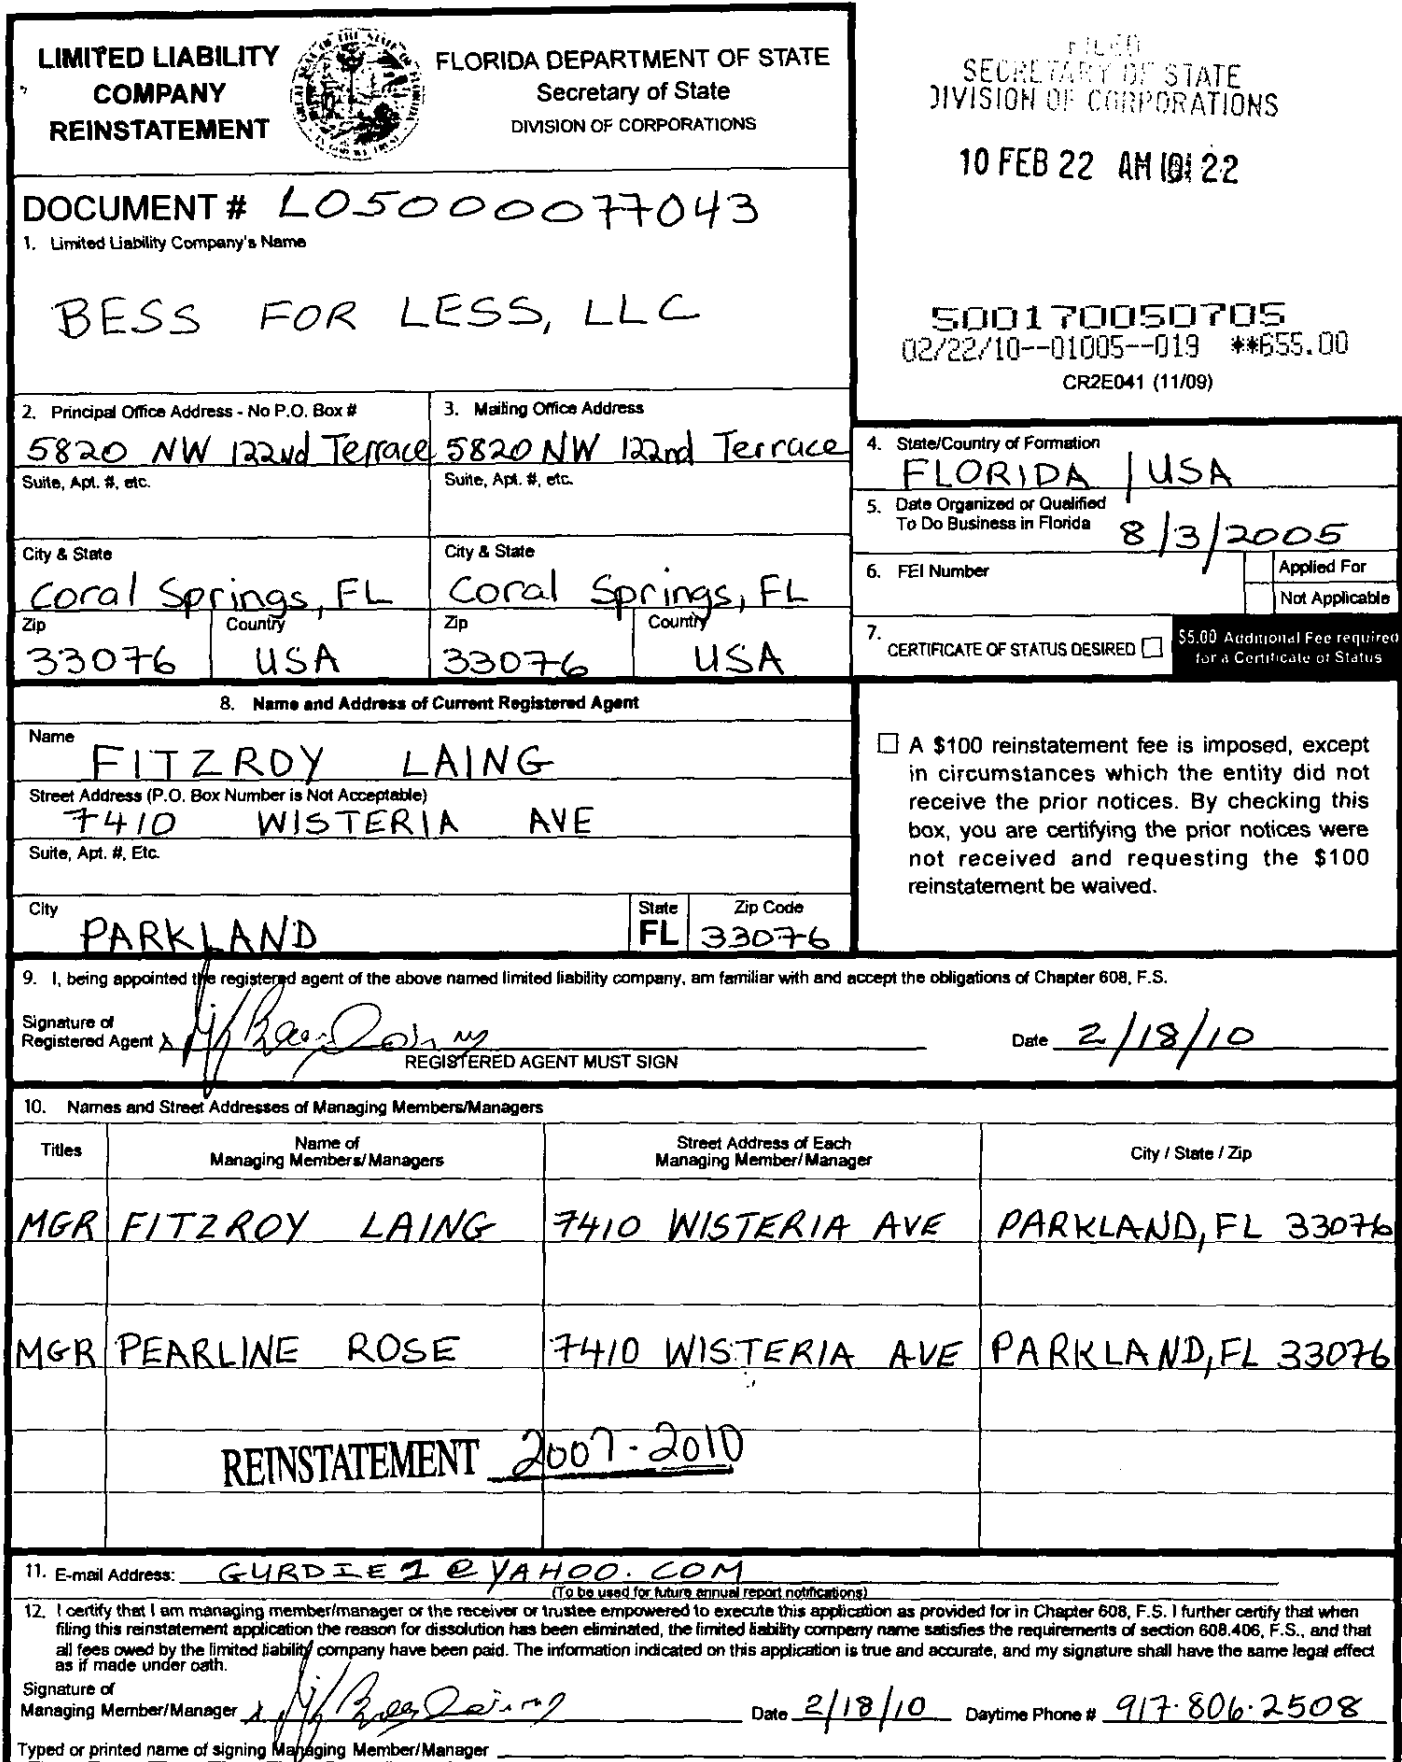 LIMITED LIABILITY
COMPANY
REINSTATEMENT
FLORIDA DEPARTMENT OF STATE
Secretary of State
DIVISION OF CORPORATIONS
FILED
SECRETARY OF STATE
DIVISION OF CORPORATIONS
10 FEB 22 AM 10: 22
DOCUMENT # L05000077043
1. Limited Liability Company's Name
BESS FOR LESS, LLC
500170050705
02/22/10--01005--019 **655.00
CR2E041 (11/09)
2. Principal Office Address - No P.O. Box #
5820 NW 122nd Terrace
Suite, Apt. #, etc.
City & State
Coral Springs, FL
Zip
33076
Country
USA
3. Mailing Office Address
5820 NW 122nd Terrace
Suite, Apt. #, etc.
City & State
Coral Springs, FL
Zip
33076
Country
USA
4. State/Country of Formation
FLORIDA / USA
5. Date Organized or Qualified
To Do Business in Florida 8/3/2005
6. FEI Number
Applied For
Not Applicable
7. CERTIFICATE OF STATUS DESIRED
$5.00 Additional Fee required
for a Certificate of Status
8. Name and Address of Current Registered Agent
Name
FITZROY LAING
Street Address (P.O. Box Number is Not Acceptable)
7410 WISTERIA AVE
Suite, Apt. #, Etc.
City
PARKLAND
State
FL
Zip Code
33076
A $100 reinstatement fee is imposed, except
in circumstances which the entity did not
receive the prior notices. By checking this
box, you are certifying the prior notices were
not received and requesting the $100
reinstatement be waived.
9. I, being appointed the registered agent of the above named limited liability company, am familiar with and accept the obligations of Chapter 608, F.S.
Signature of
Registered Agent
Date 2/18/10
REGISTERED AGENT MUST SIGN
10. Names and Street Addresses of Managing Members/Managers
Titles
Name of
Managing Members/Managers
Street Address of Each
Managing Member/Manager
City / State / Zip
MGR FITZROY LAING 7410 WISTERIA AVE PARKLAND, FL 33076
MGR PEARLINE ROSE 7410 WISTERIA AVE PARKLAND, FL 33076
REINSTATEMENT 2007-2010
11. E-mail Address: GURDIE1@YAHOO.COM
(To be used for future annual report notifications)
12. I certify that I am managing member/manager or the receiver or trustee empowered to execute this application as provided for in Chapter 608, F.S. I further certify that when
filing this reinstatement application the reason for dissolution has been eliminated, the limited liability company name satisfies the requirements of section 608.406, F.S., and that
all fees owed by the limited liability company have been paid. The information indicated on this application is true and accurate, and my signature shall have the same legal effect
as if made under oath.
Signature of
Managing Member/Manager
Date 2/18/10 Daytime Phone # 917·806·2508
Typed or printed name of signing Managing Member/Manager